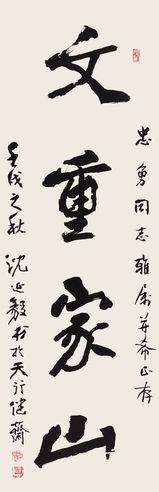 文重家山
忠勇同志雅属并希正存
壬戌之秋
沈延毅书于天行健斋